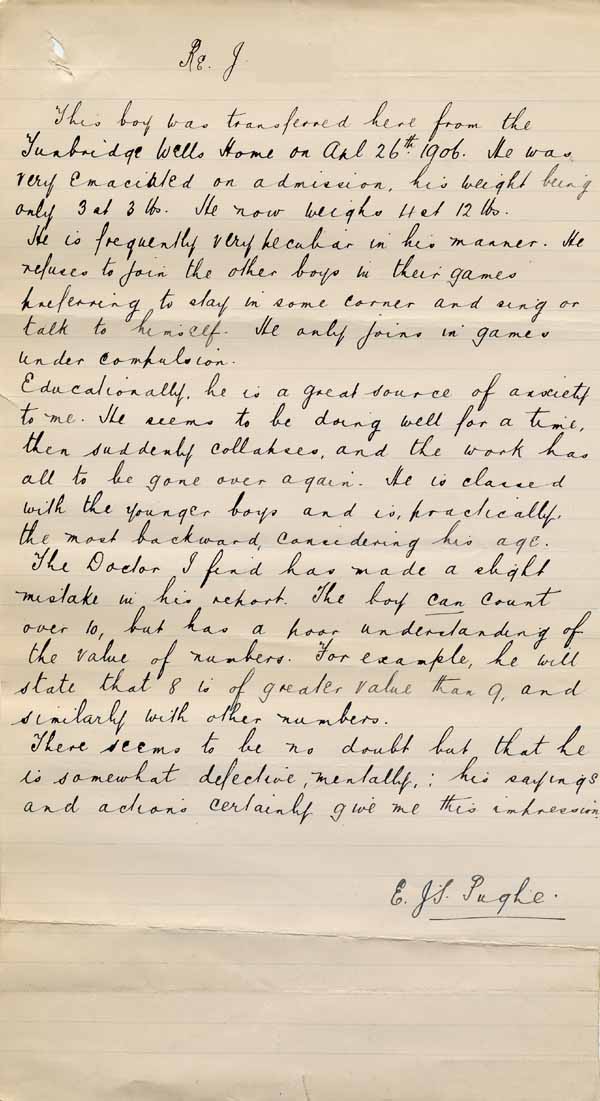 Re. J
This boy was transferred here from the
Tunbridge Wells Home on Apl 26th 1906. He was
very emaciated on admission, his weight being
only 3 st 3 lbs. He now weighs 4 st 12 lbs.
He is frequently very peculiar in his manner. He
refuses to join the other boys in their games
preferring to stay in some corner and sing or
talk to himself. He only joins in games
under compulsion.
Educationally, he is a great source of anxiety
to me. He seems to be doing well for a time,
then suddenly collapses, and the work has
all to be gone over again. He is classed
with the younger boys and is, practically,
the most backward, considering his age.
The Doctor I find has made a slight
mistake in his report. The boy can count
over 10, but has a poor understanding of
the value of numbers. For example, he will
state that 8 is of greater value than 9, and
similarly with other numbers.
There seems to be no doubt but that he
is somewhat defective, mentally, ; his sayings
and actions certainly give me this impression.
E. J.S. Pughe.